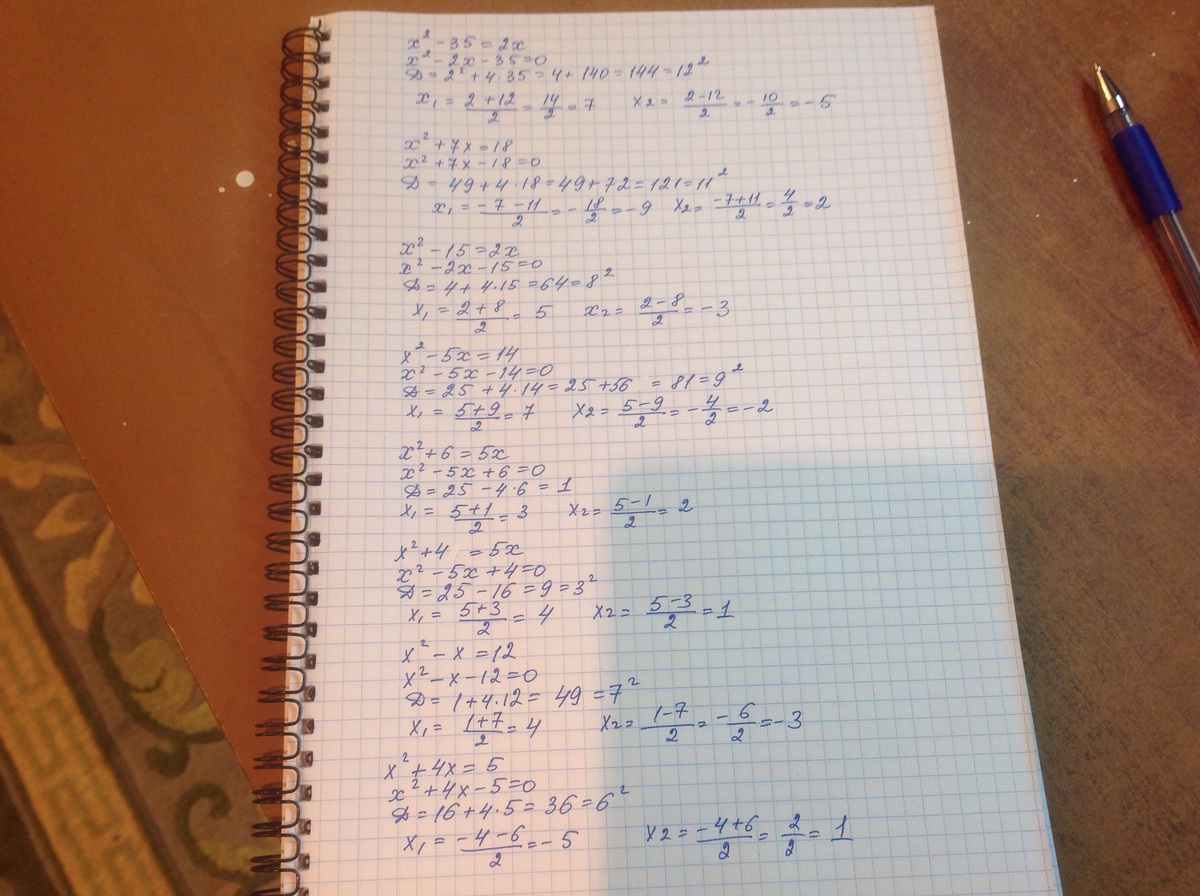 x² - 35 = 2x
x² - 2x - 35 = 0
D = 2² + 4·35 = 4 + 140 = 144 = 12²
x₁ = (2+12)/2 = 14/2 = 7 x₂ = (2-12)/2 = -10/2 = -5
x² + 7x = 18
x² + 7x - 18 = 0
D = 49 + 4·18 = 49 + 72 = 121 = 11²
x₁ = (-7-11)/2 = -18/2 = -9 x₂ = (-7+11)/2 = 4/2 = 2
x² - 15 = 2x
x² - 2x - 15 = 0
D = 4 + 4·15 = 64 = 8²
x₁ = (2+8)/2 = 5 x₂ = (2-8)/2 = -3
x² - 5x = 14
x² - 5x - 14 = 0
D = 25 + 4·14 = 25 + 56 = 81 = 9²
x₁ = (5+9)/2 = 7 x₂ = (5-9)/2 = -4/2 = -2
x² + 6 = 5x
x² - 5x + 6 = 0
D = 25 - 4·6 = 1
x₁ = (5+1)/2 = 3 x₂ = (5-1)/2 = 2
x² + 4 = 5x
x² - 5x + 4 = 0
D = 25 - 16 = 9 = 3²
x₁ = (5+3)/2 = 4 x₂ = (5-3)/2 = 1
x² - x = 12
x² - x - 12 = 0
D = 1 + 4·12 = 49 = 7²
x₁ = (1+7)/2 = 4 x₂ = (1-7)/2 = -6/2 = -3
x² + 4x = 5
x² + 4x - 5 = 0
D = 16 + 4·5 = 36 = 6²
x₁ = (-4-6)/2 = -5 x₂ = (-4+6)/2 = 2/2 = 1